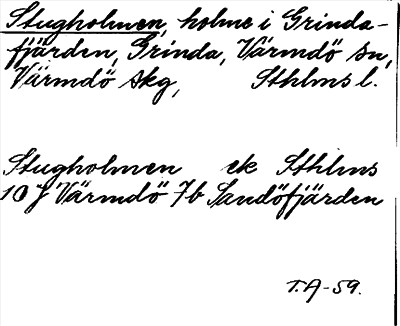 Stugholmen, holme i Grinda-
fjärden, Grinda, Värmdö sn,
Värmdö skg, Sthlms l.
Stugholmen ek Sthlms
10 J Värmdö 7b Sandöfjärden
T.A-59.